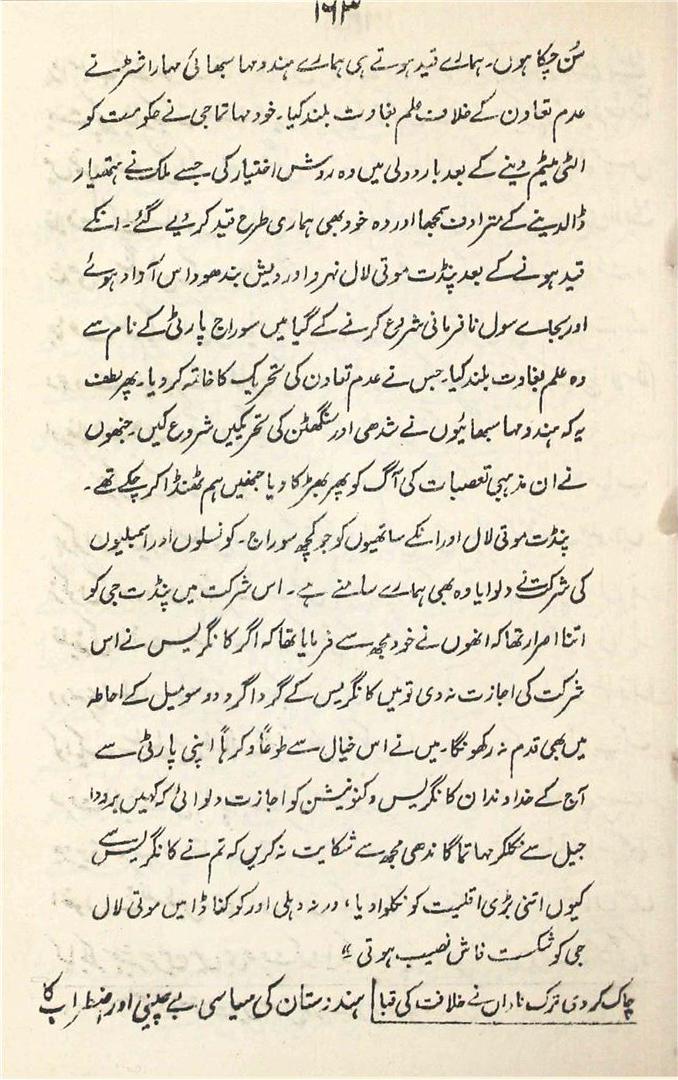 ۱۶۳
سُن چکا ہوں۔ ہمارے قید ہوتے ہی ہمارے ہندو مہا سبھائی مہاراشٹر نے
عدم تعاون کے خلاف علم بغاوت بلند کیا۔ خود مہاتما جی نے حکومت کو
الٹی میٹم دینے کے بعد باردولی میں وہ روش اختیار کی۔ جسے ملک نے ہتھیار
ڈالدینے کے مترادف سمجھا اور وہ خود بھی ہماری طرح قید کر دیے گئے۔ انکے
قید ہونے کے بعد پنڈت موتی لال نہرو اور دیش بندھو داس آزاد ہوئے
اور بجاے سول نافرمانی شروع کرنے کے گیا میں سوراج پارٹی کے نام سے
وہ علم بغاوت بلند کیا۔ جس نے عدم تعاون کی تحریک کا خاتمہ کر دیا۔ پھر لطف
یہ کہ ہندو مہا سبھائیوں نے شدھی اور سنگھٹن کی تحریکیں شروع کیں۔ جنھوں
نے ان مذہبی تعصبات کی آگ کو پھر بھڑکا دیا جنھیں ہم ٹھنڈا کر چکے تھے۔
پنڈت موتی لال اور انکے ساتھیوں کو جو کچھ سوراج۔ کونسلوں اور اسمبلیوں
کی شرکت نے دلوایا وہ بھی ہمارے سامنے ہے۔ اس شرکت میں پنڈت جی کو
اتنا اصرار تھا کہ انھوں نے خود مجھ سے فرمایا تھا کہ اگر کانگریس نے اس
شرکت کی اجازت نہ دی تو میں کانگریس کے گرداگرد دو سو میل کے احاطہ
میں بھی قدم نہ رکھونگا۔ میں نے اس خیال سے طوعاً و کرہاً اپنی پارٹی سے
آج کے خداوندان کانگریس و کنونیشن کو اجازت دلوائی کہ کہیں یرودا
جیل سے نکلکر مہاتما گاندھی مجھ سے شکایت نہ کریں کہ تم نے کانگریس سے
کیوں اتنی بڑی اقلیت کو نکلوا دیا، ورنہ دہلی اور کوکناڈا میں موتی لال
جی کو شکست فاش نصیب ہوتی“
چاک کر دی ترک ناداں نے خلافت کی قبا | ہندوستان کی سیاسی بے چینی اور اضطراب کا